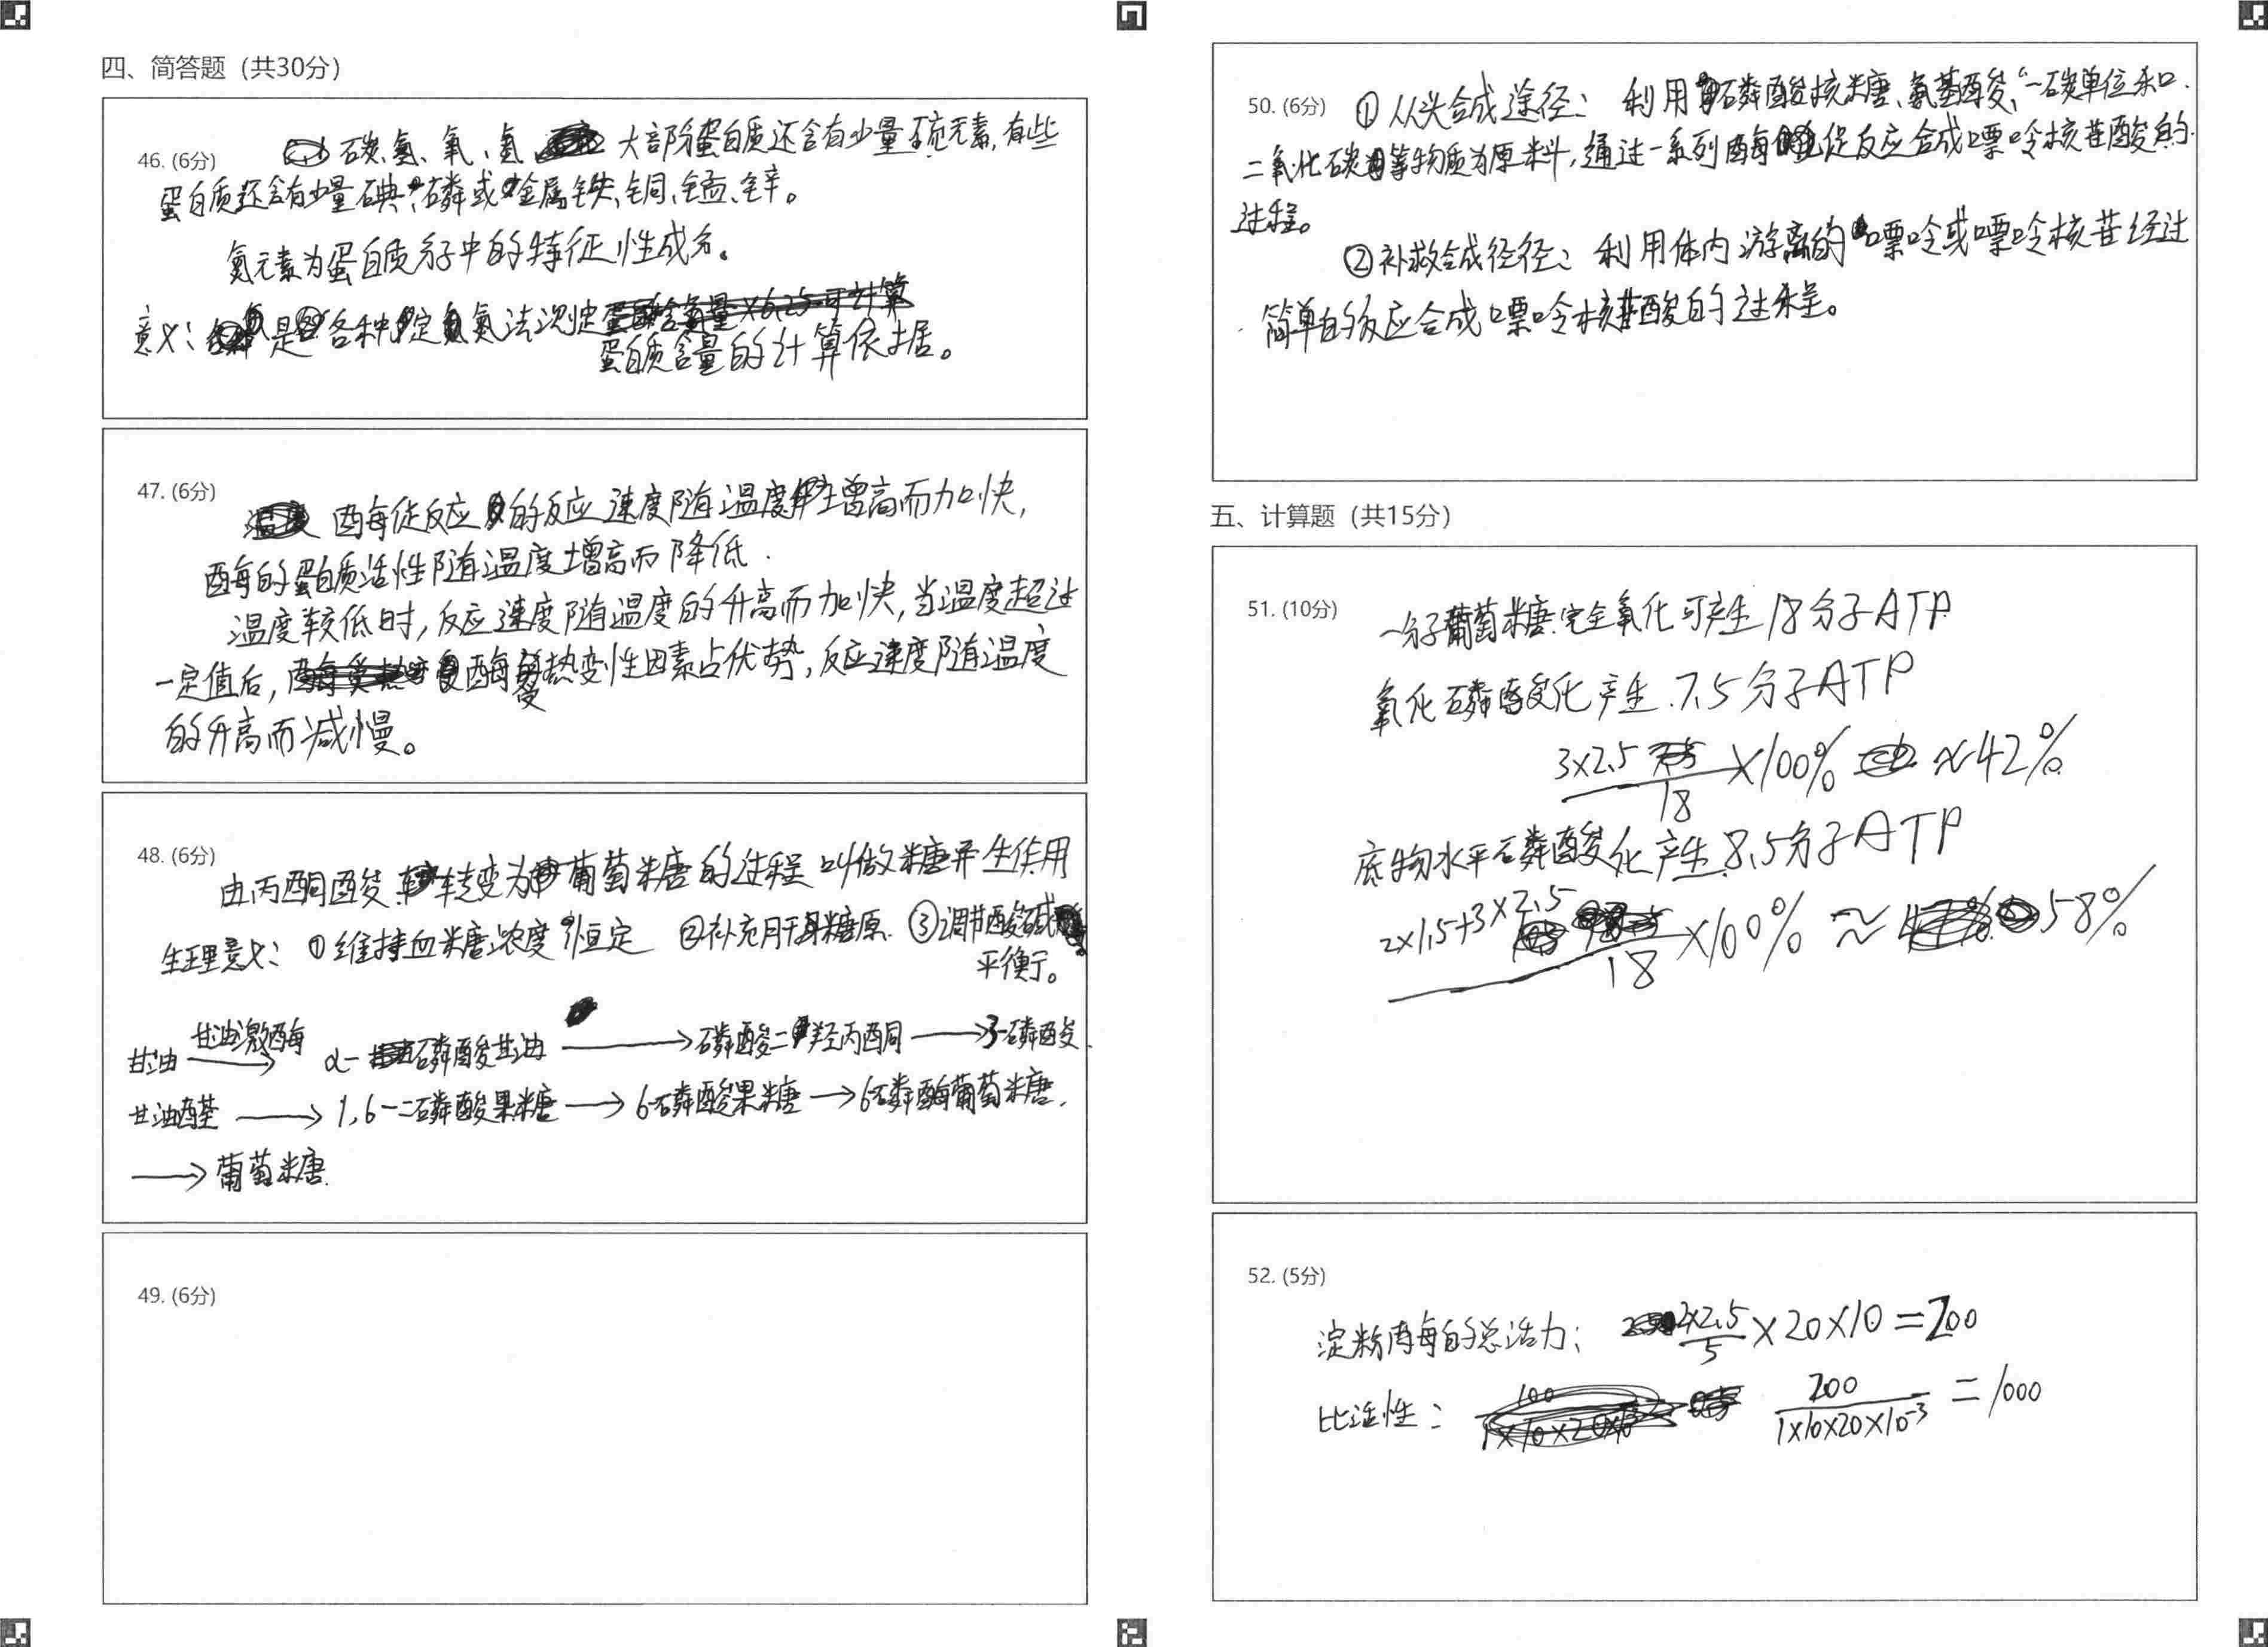 四、简答题（共30分）
46. (6分) 碳、氢、氧、氮 大部分蛋白质还含有少量硫元素,有些
蛋白质还含有少量碘、磷或金属铁、铜、锰、锌。
氮元素为蛋白质分子中的特征性成分。
意义: 是各种定氮法测定
蛋白质含量的计算依据。
47. (6分) 酶促反应的反应速度随温度增高而加快,
酶的蛋白质活性随温度增高而降低.
温度较低时,反应速度随温度的升高而加快,当温度超过
一定值后, 酶受热变性因素占优势,反应速度随温度
的升高而减慢。
48. (6分)
由丙酮酸转变为葡萄糖的过程叫做糖异生作用
生理意义: ①维持血糖浓度恒定 ②补充肝糖原. ③调节酸碱
平衡。
甘油 甘油激酶 → α-磷酸甘油 → 磷酸二羟丙酮 → 3-磷酸
甘油醛 → 1,6-二磷酸果糖 → 6磷酸果糖 → 6磷酶葡萄糖.
→ 葡萄糖.
49. (6分)
50. (6分) ①从头合成途径: 利用磷酸核糖、氨基酸、一碳单位和
二氧化碳等物质为原料,通过一系列酶促反应合成嘌呤核苷酸的
过程。
②补救合成径径: 利用体内游离的嘌呤或嘌呤核苷经过
简单的反应合成嘌呤核苷酸的过程。
五、计算题（共15分）
51. (10分) 一分子葡萄糖完全氧化可产生18分子ATP
氧化磷酸化产生7.5分子ATP
3×2.5/18 ×100% ≈42%
底物水平磷酸化产生8.5分子ATP
2×1.5+3×2.5/18 ×100% ≈ 58%
52. (5分)
淀粉酶的总活力: 2×2.5/5 ×20×10=200
比活性: 200/1×10×20×10⁻³ =1000